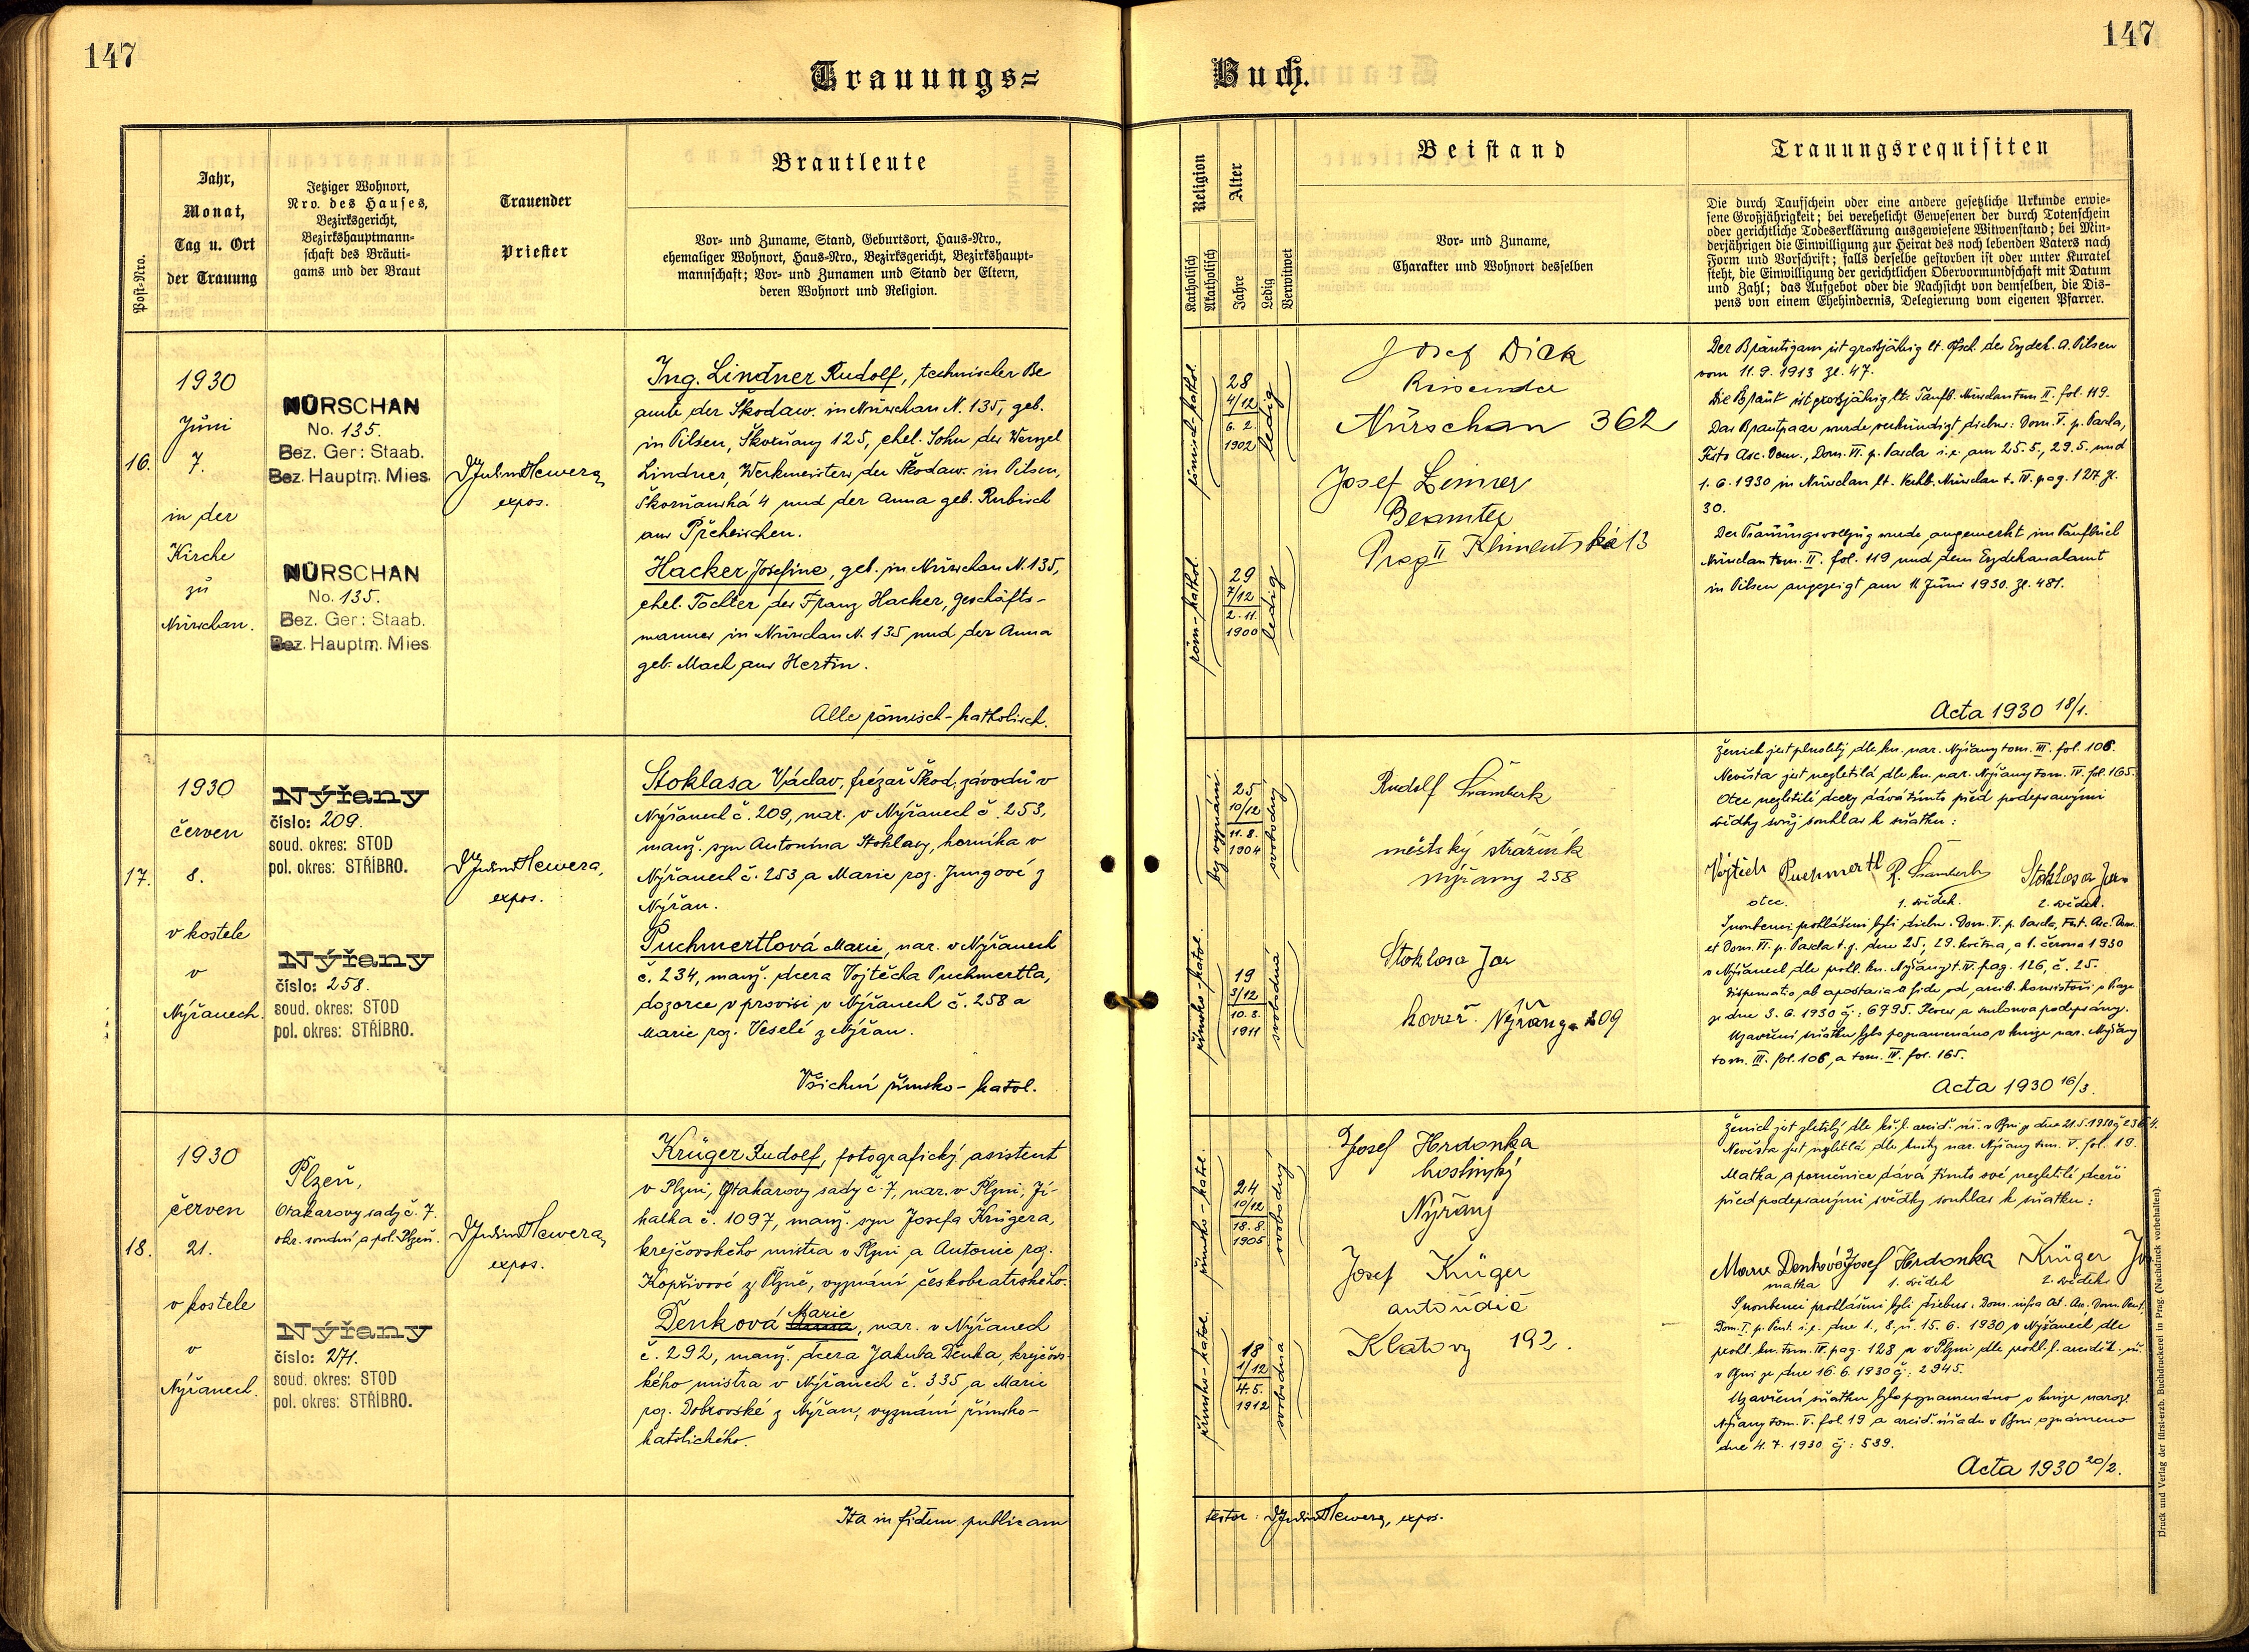 147
147
Trauungs=
Buch.
Post-Nro.
Jahr,
Monat,
Tag u. Ort
der Trauung
Jetziger Wohnort,
Nro. des Hauses,
Bezirksgericht,
Bezirkshauptmann-
schaft des Bräuti-
gams und der Braut
Trauender
Priester
Brautleute
Vor- und Zuname, Stand, Geburtsort, Haus-Nro.,
ehemaliger Wohnort, Haus-Nro., Bezirksgericht, Bezirkshaupt-
mannschaft; Vor- und Zunamen und Stand der Eltern,
deren Wohnort und Religion.
Religion
Katholisch
Akatholisch
Alter
Jahre
Ledig
Verwitwet
Beistand
Vor- und Zuname,
Charakter und Wohnort desselben
Trauungsrequisiten
Die durch Taufschein oder eine andere gesetzliche Urkunde erwie-
sene Großjährigkeit; bei verehelicht Gewesenen der durch Totenschein
oder gerichtliche Todeserklärung ausgewiesene Witwenstand; bei Min-
derjährigen die Einwilligung zur Heirat des noch lebenden Vaters nach
Form und Vorschrift; falls derselbe gestorben ist oder unter Kuratel
steht, die Einwilligung der gerichtlichen Obervormundschaft mit Datum
und Zahl; das Aufgebot oder die Nachsicht von demselben, die Dis-
pens von einem Ehehindernis, Delegierung vom eigenen Pfarrer.
16.
1930
Juni
7.
in der
Kirche
zu
Nürschan.
NÜRSCHAN
No. 135.
Bez. Ger: Staab.
Bez. Hauptm. Mies.
NÜRSCHAN
No. 135.
Bez. Ger: Staab.
Bez. Hauptm. Mies.
Hewera,
expos.
Ing. Lindner Rudolf, technischer Be
amte der Škodaw. in Nürschan N. 135, geb.
in Pilsen, Škorňany 125, ehel. Sohn des Wenzel
Lindner, Werkmeisters der Škodaw. in Pilsen,
Škorňanská 4 und der Anna geb. Rubisch
aus Přeheischen.
Hacker Josefine, geb. in Nürschan N. 135,
ehel. Tochter des Franz Hacker, Geschäfts-
mannes in Nürschan N. 135 und der Anna
geb. Mach aus Hertin.
Alle römisch-katholisch.
römisch-kathol.
28
4/12
6. 2.
1902
ledig
röm.-kathol.
29
7/12
2. 11.
1900
ledig
Josef Dick
Reisender
Nürschan 362
Josef
Beamter
Prag II Klimentská 13
Der Bräutigam ist großjährig lt. Tfsch. des Erzdek. A. Pilsen
vom 11. 9. 1913 Zl. 47.
Die Braut ist großjährig lt. Taufb. Nürschan tom II. fol. 119.
Das Brautpaar wurde verkündigt diebus: Dom. V. p. Pascha,
Festo Asc. Dom., Dom. VI. p. Pascha i. e. am 25. 5., 29. 5. und
1. 6. 1930 in Nürschan lt. Verkb. Nürschan t. IV. pag. 127 Zl.
30.
Der Trauungsvollzug wurde angemerkt im Taufbuch
Nürschan tom. II. fol. 119 und dem Erzdekanalamt
in Pilsen angezeigt am 11 Juni 1930. Zl. 481.
Acta 1930 18/1.
17.
1930
červen
8.
v kostele
v
Nýřanech.
Nýřany
číslo: 209.
soud. okres: STOD
pol. okres: STŘÍBRO.
Nýřany
číslo: 258.
soud. okres: STOD
pol. okres: STŘÍBRO.
Hewera,
expos.
Stoklasa Václav, frézař Škod. závodů v
Nýřanech č. 209, nar. v Nýřanech č. 253,
manž. syn Antonína Stoklasy, horníka v
Nýřanech č. 253 a Marie roz. Jungové z
Nýřan.
Puchmertlová Marie, nar. v Nýřanech
č. 234, manž. dcera Vojtěcha Puchmertla,
dozorce v provisi v Nýřanech č. 258 a
Marie roz. Veselé z Nýřan.
Všichni římsko-katol.
bez vyznání.
25
10/12
11. 8.
1904
svobodný
římsko-katol.
19
3/12
10. 3.
1911
svobodná
Rudolf Šrámberk
městský strážník
Nýřany 258
Stoklasa Jan
kovář. Nýřany 209
Ženich jest plnoletý dle kn. nar. Nýřany tom. III. fol. 106.
Nevěsta jest nezletilá dle kn. nar. Nýřany tom. IV. fol. 165.
Otec nezletilé dcery dává tímto před podepsanými
svědky svůj souhlas k sňatku:
Vojtěch Puchmertl R. Šrámberk Stoklasa Jan
otec. 1. svědek. 2. svědek.
Snoubenci prohlášeni byli diebus: Dom. V. p. Pascha, Fest. Asc. Dom.
et Dom. VI. p. Pascha t. j. dne 25., 29. května, a 1. června 1930
v Nýřanech dle prohl. kn. Nýřany t. IV. pag. 126, č. 25.
Dispensatio ab apostasia a fide od arcib. konsistoře v Praze
ze dne 3. 6. 1930 čj: 6795. Revers a smlouva podepsány.
Uzavření sňatku bylo poznamenáno v knize nar. Nýřany
tom. III. fol. 106, a tom. IV. fol. 165.
Acta 1930 16/3.
18.
1930
červen
21.
v kostele
v
Nýřanech.
Plzeň,
Otakarovy sady č. 7.
okr. soudní a pol. Plzeň.
Nýřany
číslo: 271.
soud. okres: STOD
pol. okres: STŘÍBRO.
Hewera,
expos.
Krüger Rudolf, fotografický asistent
v Plzni, Otakarovy sady č. 7, nar. v Plzni, Ji-
halka č. 1097, manž. syn Josefa Krügera,
krejčovského mistra v Plzni a Antonie roz.
Kopřivové z Plzně, vyznání českobratrského.
Marie
Denková, nar. v Nýřanech
č. 292, manž. dcera Jakuba Denka, krejčovs-
kého mistra v Nýřanech č. 335 a Marie
roz. Dobrovské z Nýřan, vyznání římsko-
katolického.
římsko-katol.
24
10/12
18. 8.
1905
svobodný
římsko-katol.
18
1/12
4. 5.
1912
svobodná
Josef Hrdonka
hostinský
Nýřany
Josef Krüger
autořidič
Klatovy 192.
Ženich jest zletilý dle
Nevěsta jest nezletilá dle knihy nar. Nýřany tom. V. fol. 19.
Matka a poručnice dává tímto své nezletilé dceři
před podepsanými svědky souhlas k sňatku:
Marie Denková Josef Hrdonka Krüger
matka 1. svědek 2. svědek
Snoubenci prohlášeni byli diebus: Dom. infra Oct. Asc. Dom. Pent.,
Dom. I. p. Pent. i. e. dne 1., 8., a 15. 6. 1930 v Nýřanech dle
prohl. kn. tom. IV. pag. 128 a v Plzni dle prohl. l. arciděk. úř.
v Plzni ze dne 16. 6. 1930 čj: 2945.
Uzavření sňatku bylo poznamenáno v knize naroz.
Nýřany tom. V. fol. 19 a arciď. úřadu v Plzni oznámeno
dne 4. 7. 1930 čj: 539.
Acta 1930 20/2.
Ita in fidem publicam
testor: Hewera, expos.
Druck und Verlag der fürst-erzb. Buchdruckerei in Prag. (Nachdruck vorbehalten).